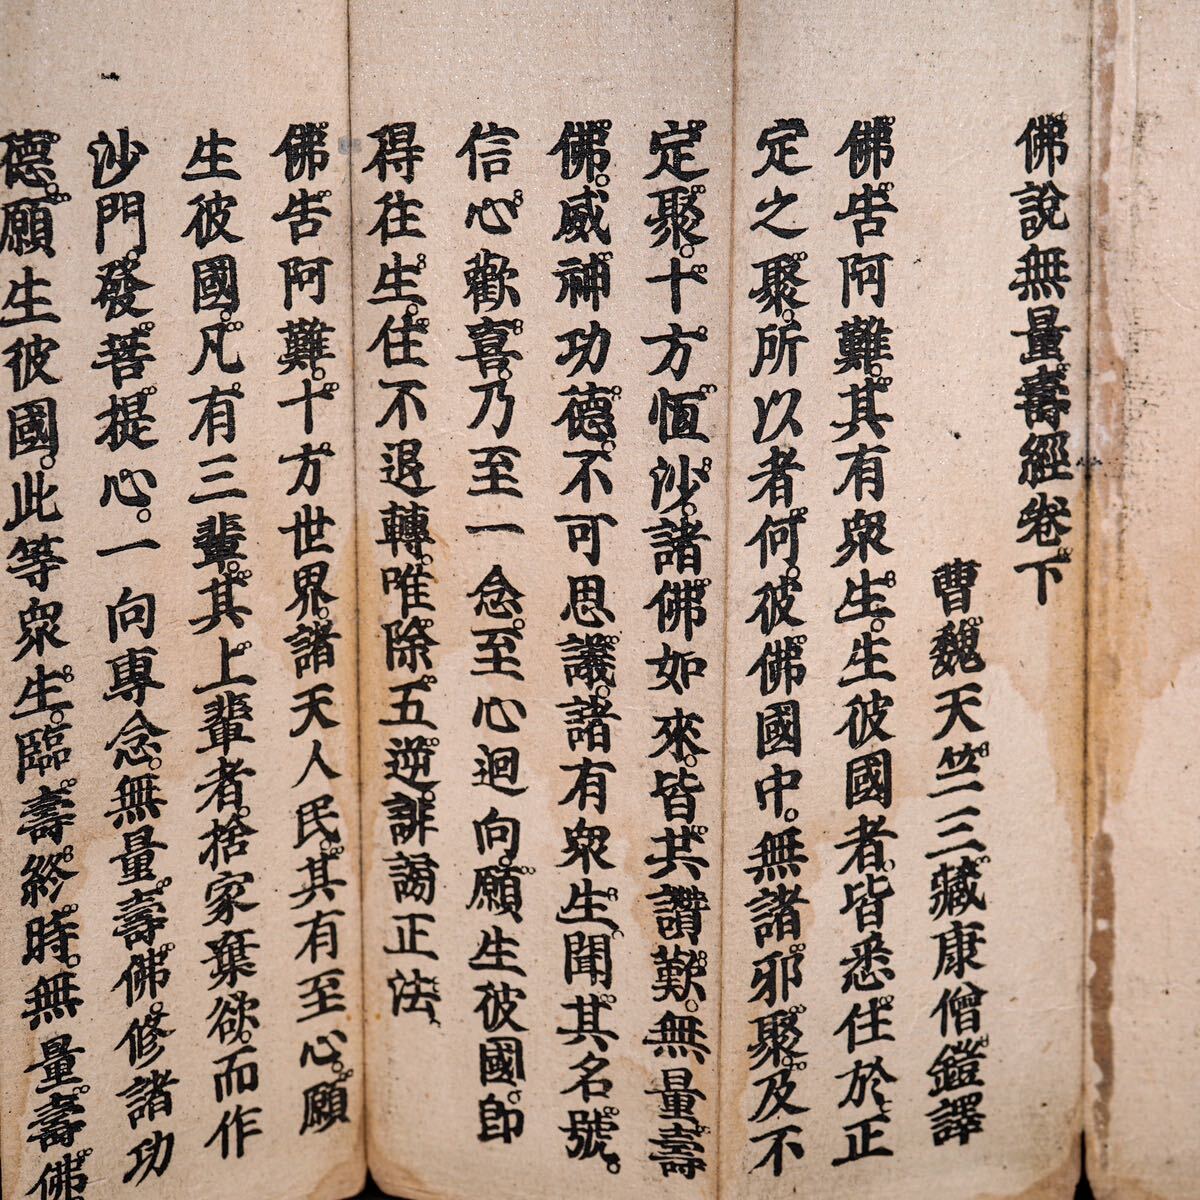 佛說無量壽經卷下
曹魏天竺三藏康僧鎧譯
佛告阿難。其有衆生。生彼國者。皆悉住於正
定之聚。所以者何。彼佛國中。無諸邪聚。及不
定聚。十方恒沙。諸佛如來。皆共讚歎。無量壽
佛。威神功德。不可思議。諸有衆生。聞其名號。
信心歡喜。乃至一念。至心迴向。願生彼國。即
得往生。住不退轉。唯除五逆。誹謗正法
佛告阿難。十方世界。諸天人民。其有至心。願
生彼國。凡有三輩。其上輩者。捨家棄欲。而作
沙門。發菩提心。一向專念。無量壽佛。修諸功
德。願生彼國。此等衆生。臨壽終時。無量壽佛